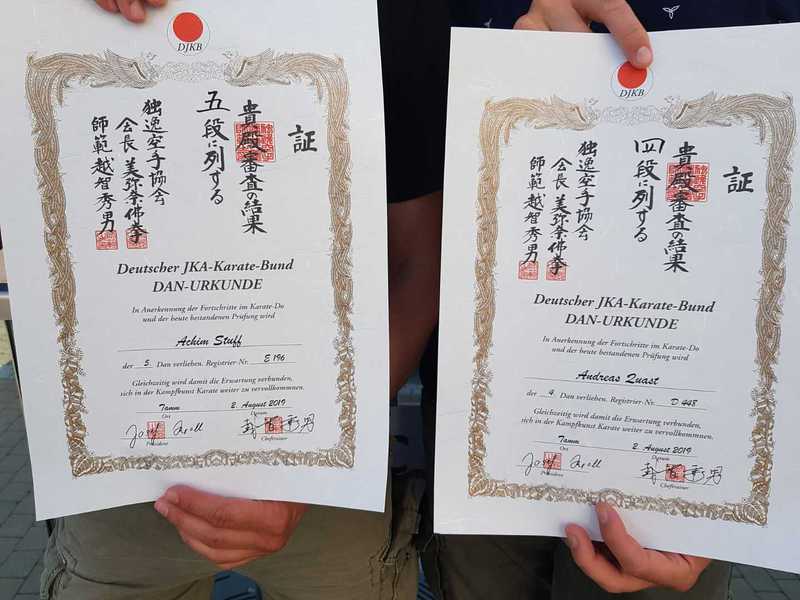 DJKB
証
貴殿審査の結果
五段に列する
独逸空手協会
会長 美弥祭佛拳
師範 越智秀男
Deutscher JKA-Karate-Bund
DAN-URKUNDE
In Anerkennung der Fortschritte im Karate-Do
und der heute bestandenen Prüfung wird
Achim Stuff
der 5. Dan verliehen. Registrier-Nr. E 196
Gleichzeitig wird damit die Erwartung verbunden,
sich in der Kampfkunst Karate weiter zu vervollkommnen.
Tamm 2. August 2019
Ort Datum
Präsident Cheftrainer
DJKB
証
貴殿審査の結果
四段に列する
独逸空手協会
会長 美弥祭佛拳
師範 越智秀男
Deutscher JKA-Karate-Bund
DAN-URKUNDE
In Anerkennung der Fortschritte im Karate-Do
und der heute bestandenen Prüfung wird
Andreas Quast
der 4. Dan verliehen. Registrier-Nr. D 448
Gleichzeitig wird damit die Erwartung verbunden,
sich in der Kampfkunst Karate weiter zu vervollkommnen.
Tamm 2. August 2019
Ort Datum
Präsident Cheftrainer